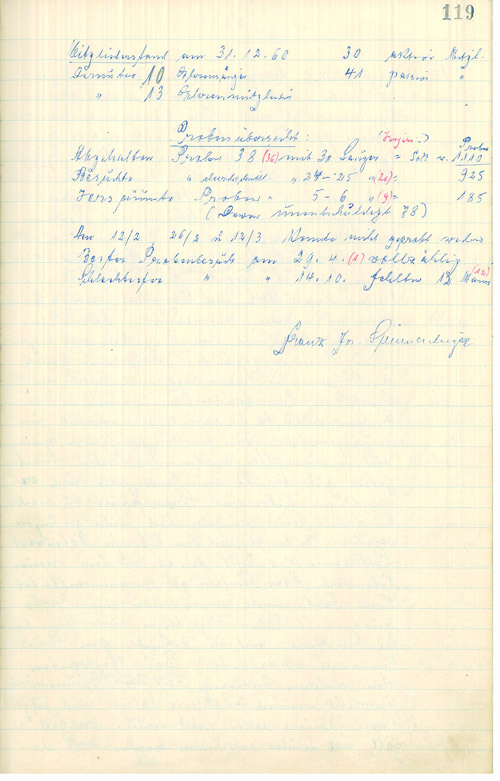 119
Mitgliederstand am 31.12.60 30 aktive Mitgl.
Darunter 10 Ehrensänger 41 passive "
" 13 Ehrenmitglieder
Probenübersicht: Proben
Abgehaltene Proben 38 (36) mit 30 Sänger = Soll v. 1110
Besuchte " durchschnittl. " 24-25 = 925
Versäumte Proben " 5-6 " (9) = 185
(Davon unentschuldigt 78)
Am 12/2, 26/2 u 12/3 konnte nicht geprobt werden
Bester Probenbesuch am 29.4. (1) vollzählig
Schlechtester " " 14.10. fehlten 12 Mann (12)
Franz Jos.